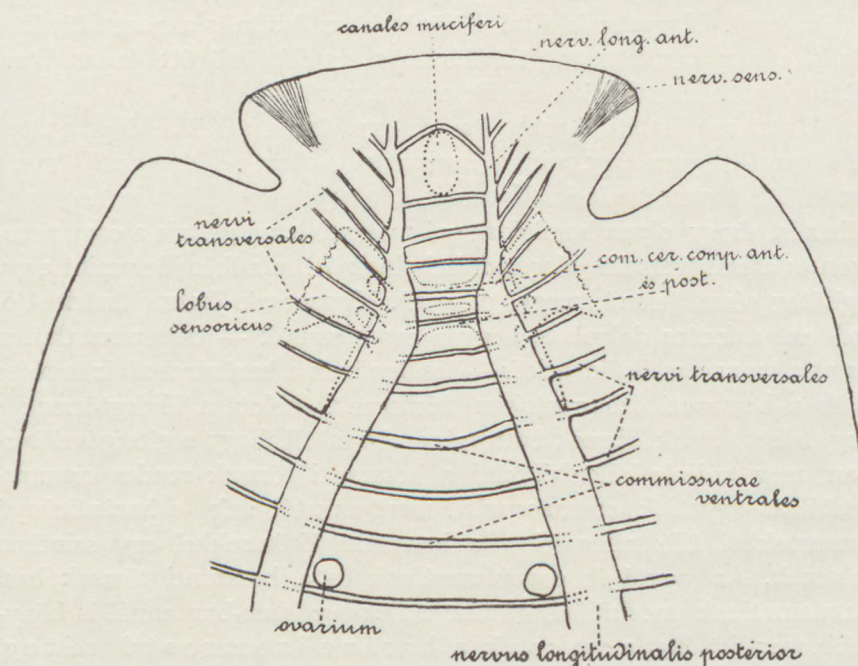 canales muciferi
nerv. long. ant.
nerv. sens.
nervi
transversales
com. cer. comp. ant.
és post.
lobus
sensoricus
nervi transversales
commissurae
ventrales
ovarium
nervus longitudinalis posterior